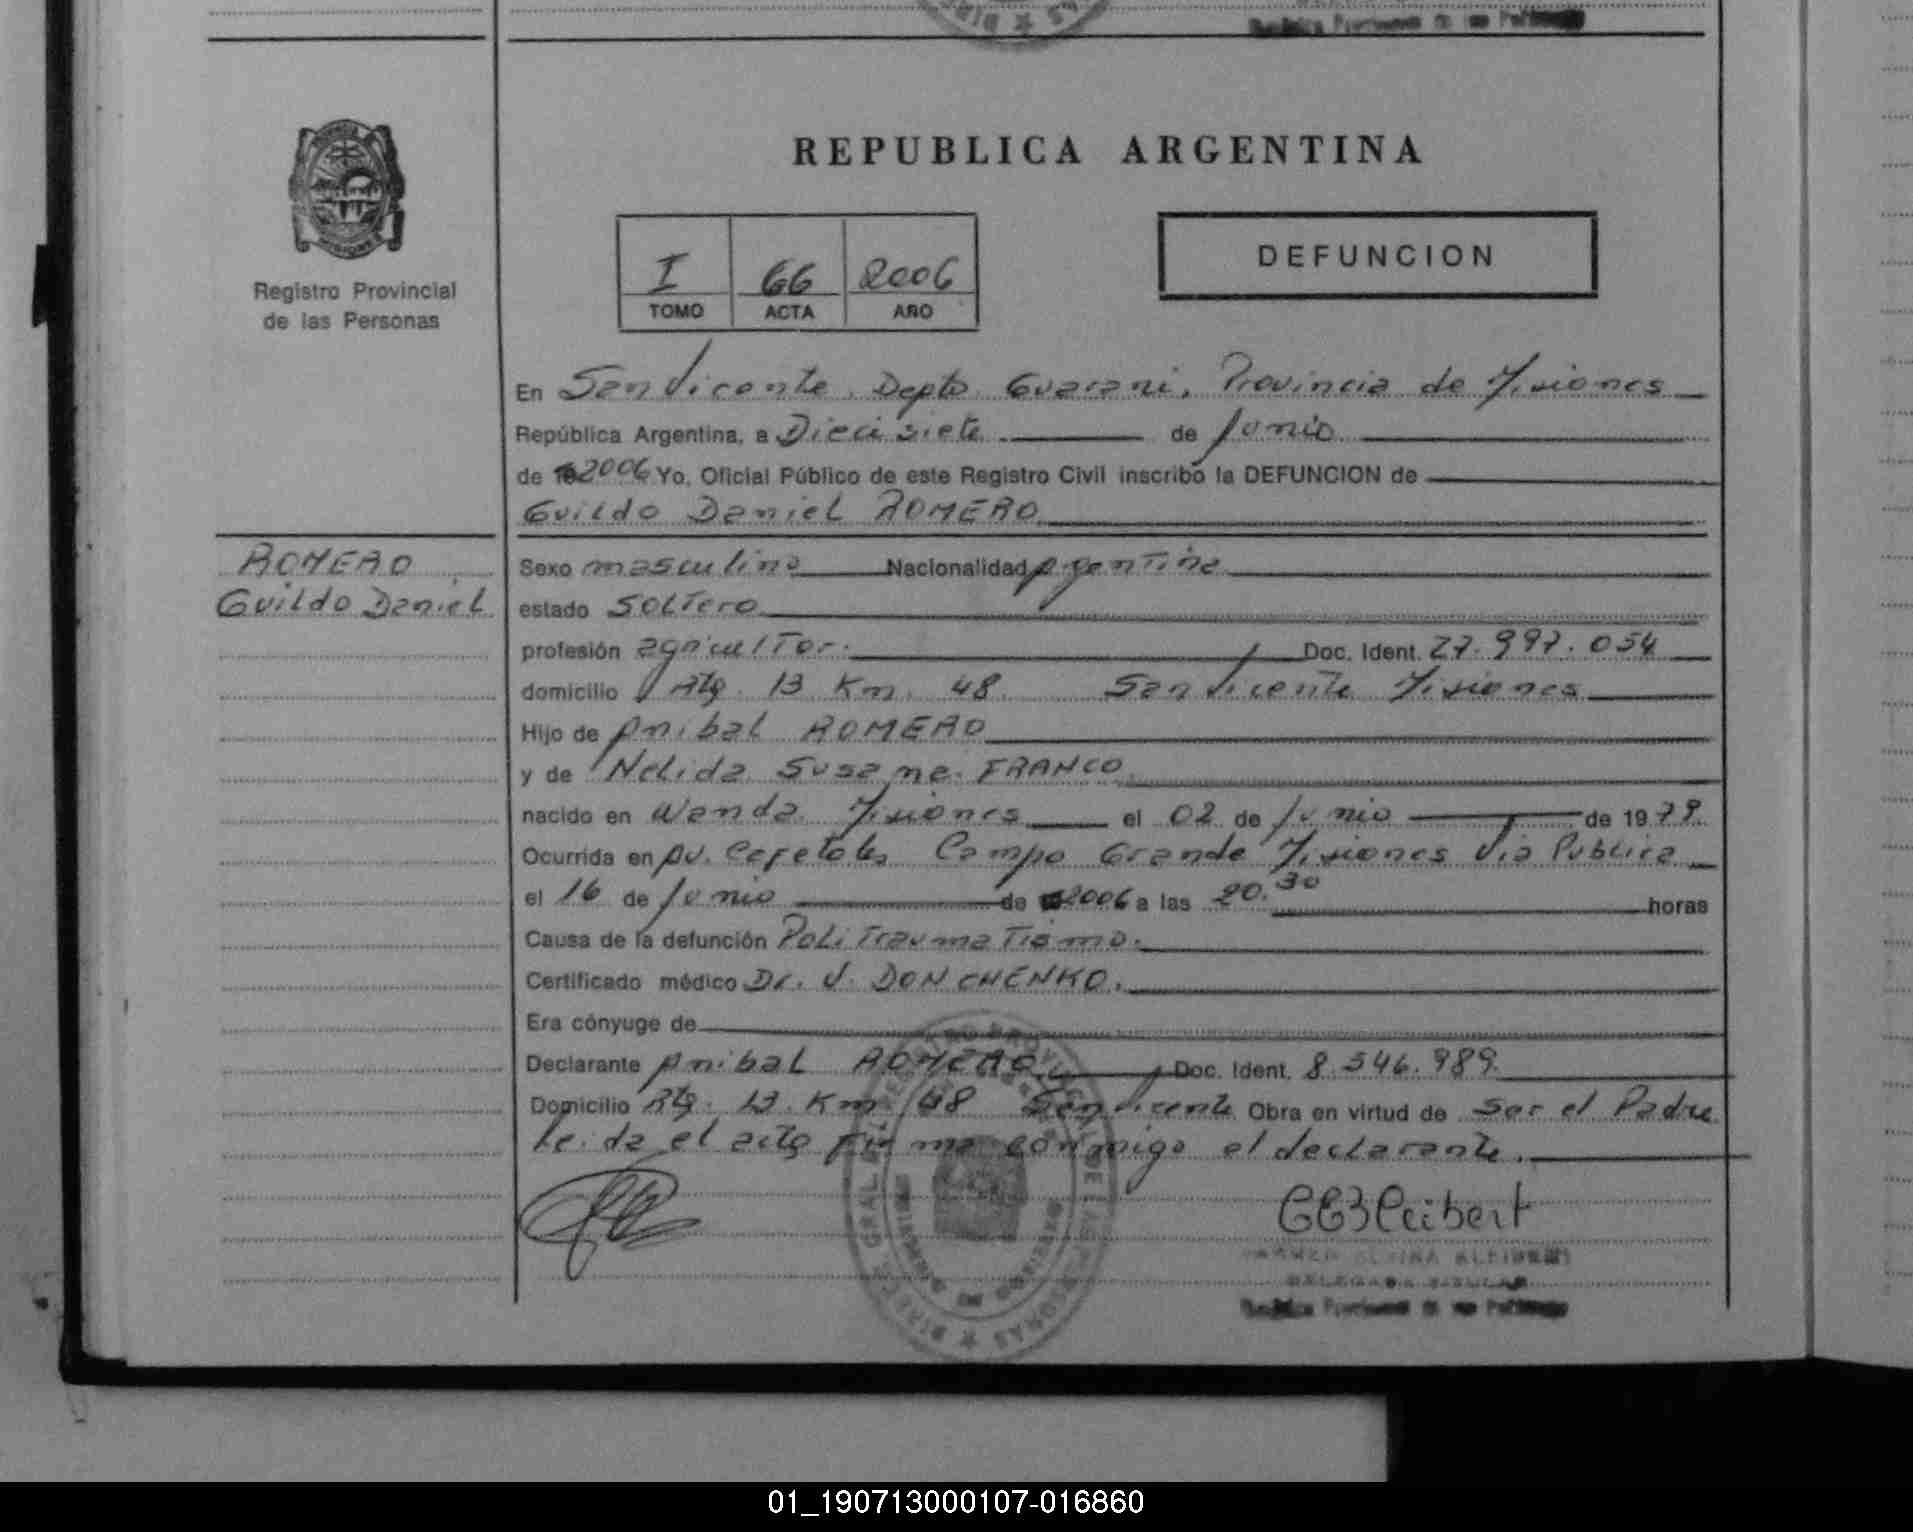 REPUBLICA ARGENTINA
MISIONES
Registro Provincial
de las Personas
I 66 2006
TOMO ACTA AÑO
DEFUNCION
En San Vicente Depto. Guarani, Provincia de Misiones
República Argentina, a Diecisiete de Junio
de 19 2006 Yo, Oficial Público de este Registro Civil inscribo la DEFUNCION de
Guildo Daniel ROMERO
ROMERO
Guildo Daniel
Sexo masculino Nacionalidad Argentina
estado Soltero
profesión agricultor. Doc. Ident. 27.997.054
domicilio Rta. 13 Km. 48. San Vicente Misiones
Hijo de Anibal ROMERO
y de Nelida Susana FRANCO
nacido en Wanda Misiones el 02 de Junio de 1979.
Ocurrida en Av. Campo Grande Misiones Via Publica
el 16 de Junio de 2006 a las 20.30 horas
Causa de la defunción PoliTraumaTismo.
Certificado médico Dr. V. DONCHENKO.
Era cónyuge de
Declarante Anibal ROMERO Doc. Ident. 8.546.989
Domicilio Rta. 13 Km 48 San Vicente Obra en virtud de Ser el Padre
Leida el acta firma conmigo el declarante.
01_190713000107-016860